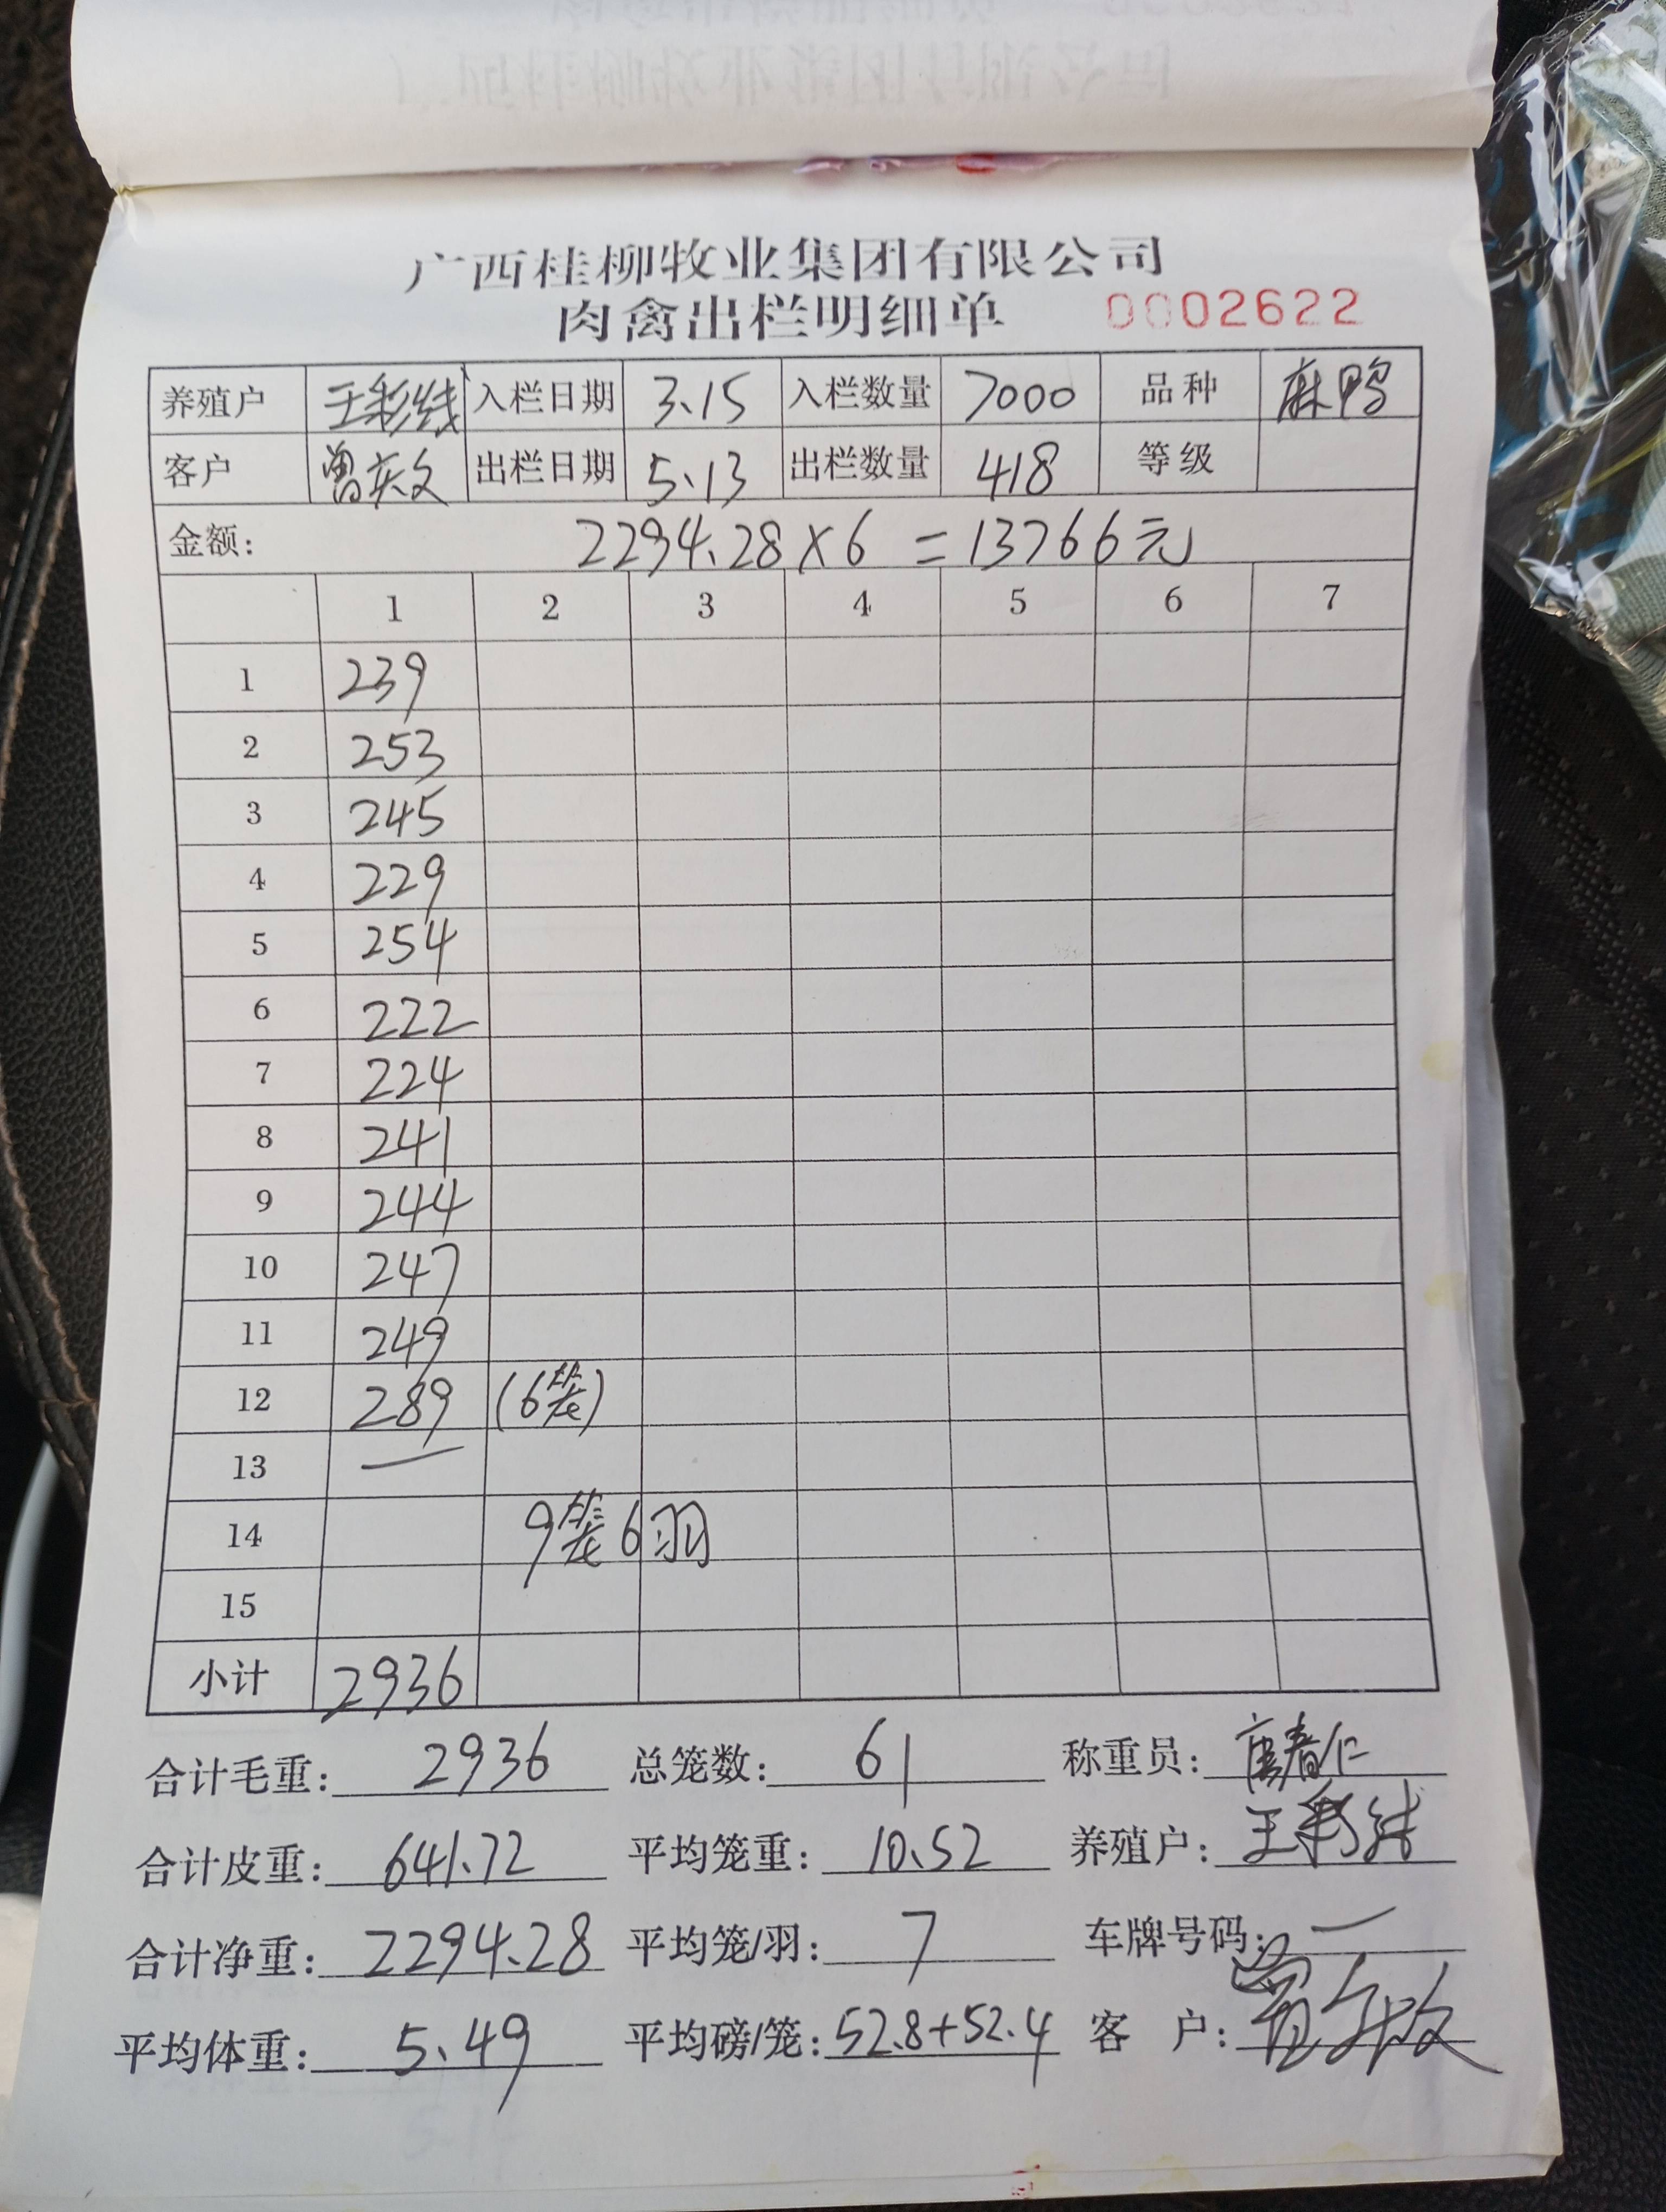 广西桂柳牧业集团有限公司
肉禽出栏明细单 0002622
养殖户 王彩线 入栏日期 3.15 入栏数量 7000 品种 麻鸭
客户 曾庆文 出栏日期 5.13 出栏数量 418 等级
金额: 2294.28×6=13766元
1 2 3 4 5 6 7
1 239
2 253
3 245
4 229
5 254
6 222
7 224
8 241
9 244
10 247
11 249
12 289 (6笼)
13 —
14 9笼6羽
15
小计 2936
合计毛重: 2936 总笼数: 61 称重员:
合计皮重: 641.72 平均笼重: 10.52 养殖户: 王彩线
合计净重: 2294.28 平均笼/羽: 7 车牌号码: —
平均体重: 5.49 平均磅/笼: 52.8+52.4 客 户: